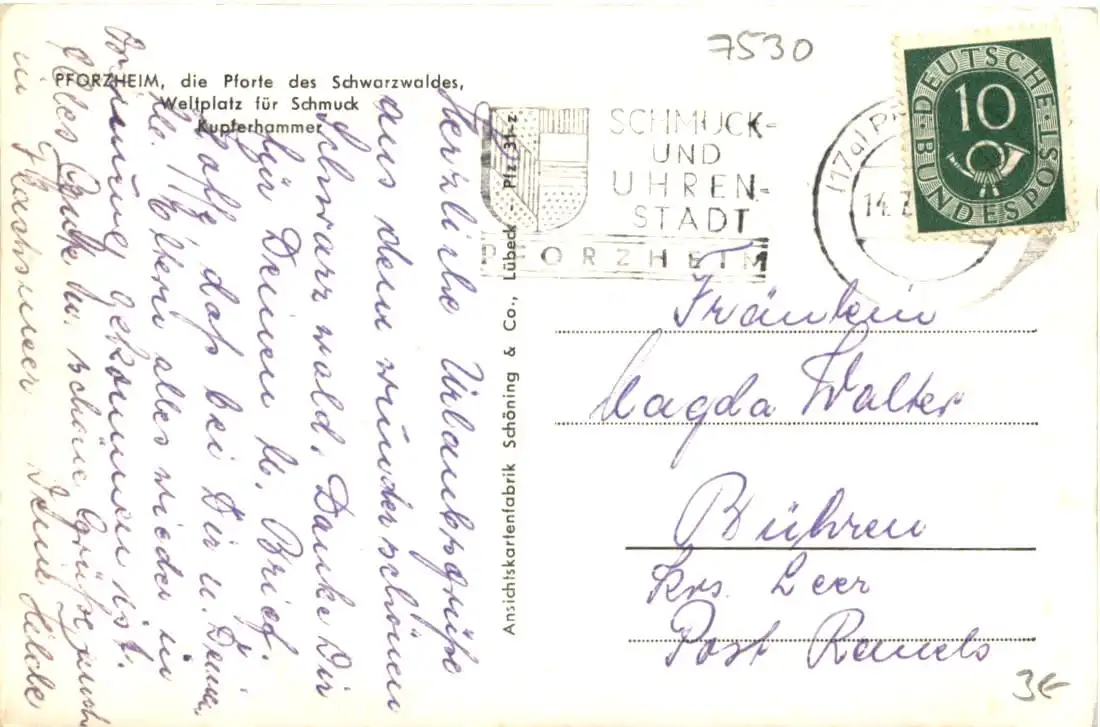 PFORZHEIM, die Pforte des Schwarzwaldes,
Weltplatz für Schmuck
Kupferhammer
7530
SCHMUCK-
UND
UHREN-
STADT
PFORZHEIM
(17a)
14.
DEUTSCHE BUNDESPOST
10
Ansichtskartenfabrik Schöning & Co., Lübeck - Pfz 31 z
Herzliche Urlaubsgrüße
aus dem wunderschönen
Schwarzwald. Danke Dir
für Deinen lb. Brief.
Hoff, daß bei Dir u. Deinen
lb. Eltern alles wieder in
Ordnung gekommen ist.
Alles Gute u. schöne Grüße
in Flachsmeer Deine Hilde
Fräulein
Magda Walter
Bühren
Krs. Leer
Post Remels
3€